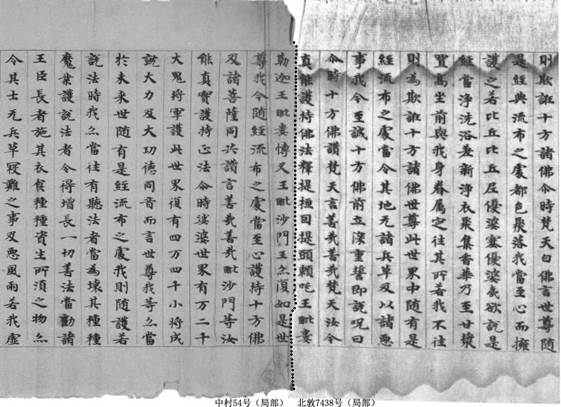 則欺誑十方諸佛尒時梵天白佛言世尊隨
是經典流布之處都邑聚落我當至心而擁
護之若比丘比丘尼優婆塞優婆夷欲說是
經當淨洗浴著新淨衣聚集香華乃至甘漿
置高坐前與我身眷属之往其所若我不往
則為欺誑十方諸佛世尊此世界中隨有是
經流布之處當令其地无諸兵革及以諸惡
事我今至誠十方佛前立深重誓即說呪曰
尒時十方佛讃梵天言善哉善哉梵天法今
真能護持佛法釋提桓回提頭賴吒王毗婁
勒迦王毗婁博叉王毗沙門王亦復如是世
尊我今隨經流布之處當至心護持十方佛
及諸菩薩同共讃言善哉善哉毗沙門等汝
能真實護持正法尒時娑婆世界有万二千
大鬼將軍護此世界復有四万四千小將咸
說大力及大功德同音而言世尊我等亦當
於未來世隨有是經流布之處我則隨護若
說法時我亦當往有聽法者當為壞其種種
魔業護說法者令得增長一切善法當勸諸
王臣長者施其衣食種種資生所須之物亦
令其土无兵革寇難之事及惡風雨若我虛
中村54号（局部） 北敦7438号（局部）